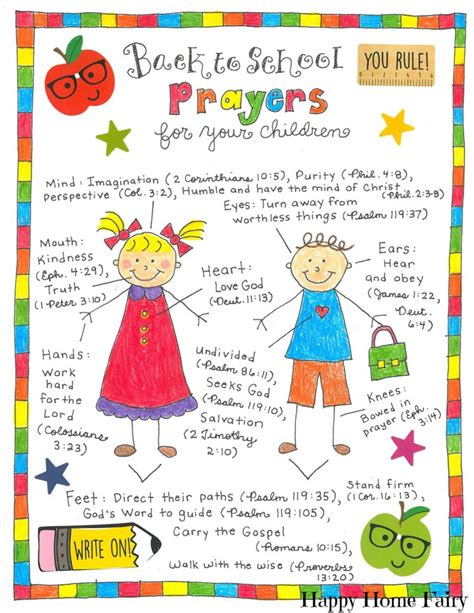 Back to School
YOU RULE!
0 1 2 3 4 5 6
Prayers
for your children
Mind: Imagination (2 Corinthians 10:5), Purity (Phil. 4:8),
perspective (Col. 3:2), Humble and have the mind of Christ
(Phil. 2:3-8)
Eyes: Turn away from
worthless things (Psalm 119:37)
Mouth:
Kindness
(Eph. 4:29),
Truth
(1 Peter 3:10)
Heart:
Love God
(Deut. 11:13)
Ears:
Hear
and obey
(James 1:22,
Deut.
6:4)
Hands:
Work
hard
for the
Lord
(Colossians
3:23)
Undivided
(Psalm 86:11)
Seeks God
(Psalm 119:10)
Salvation
(2 Timothy
2:10)
Knees:
Bowed in
prayer (Eph.
3:14)
Feet: Direct their paths (Psalm 119:35),
God's Word to guide (Psalm 119:105),
Carry the Gospel
(Romans 10:15)
Walk with the wise (Proverbs
13:20)
Stand firm
(1 Cor. 16:13)
WRITE ON!
Happy Home Fairy